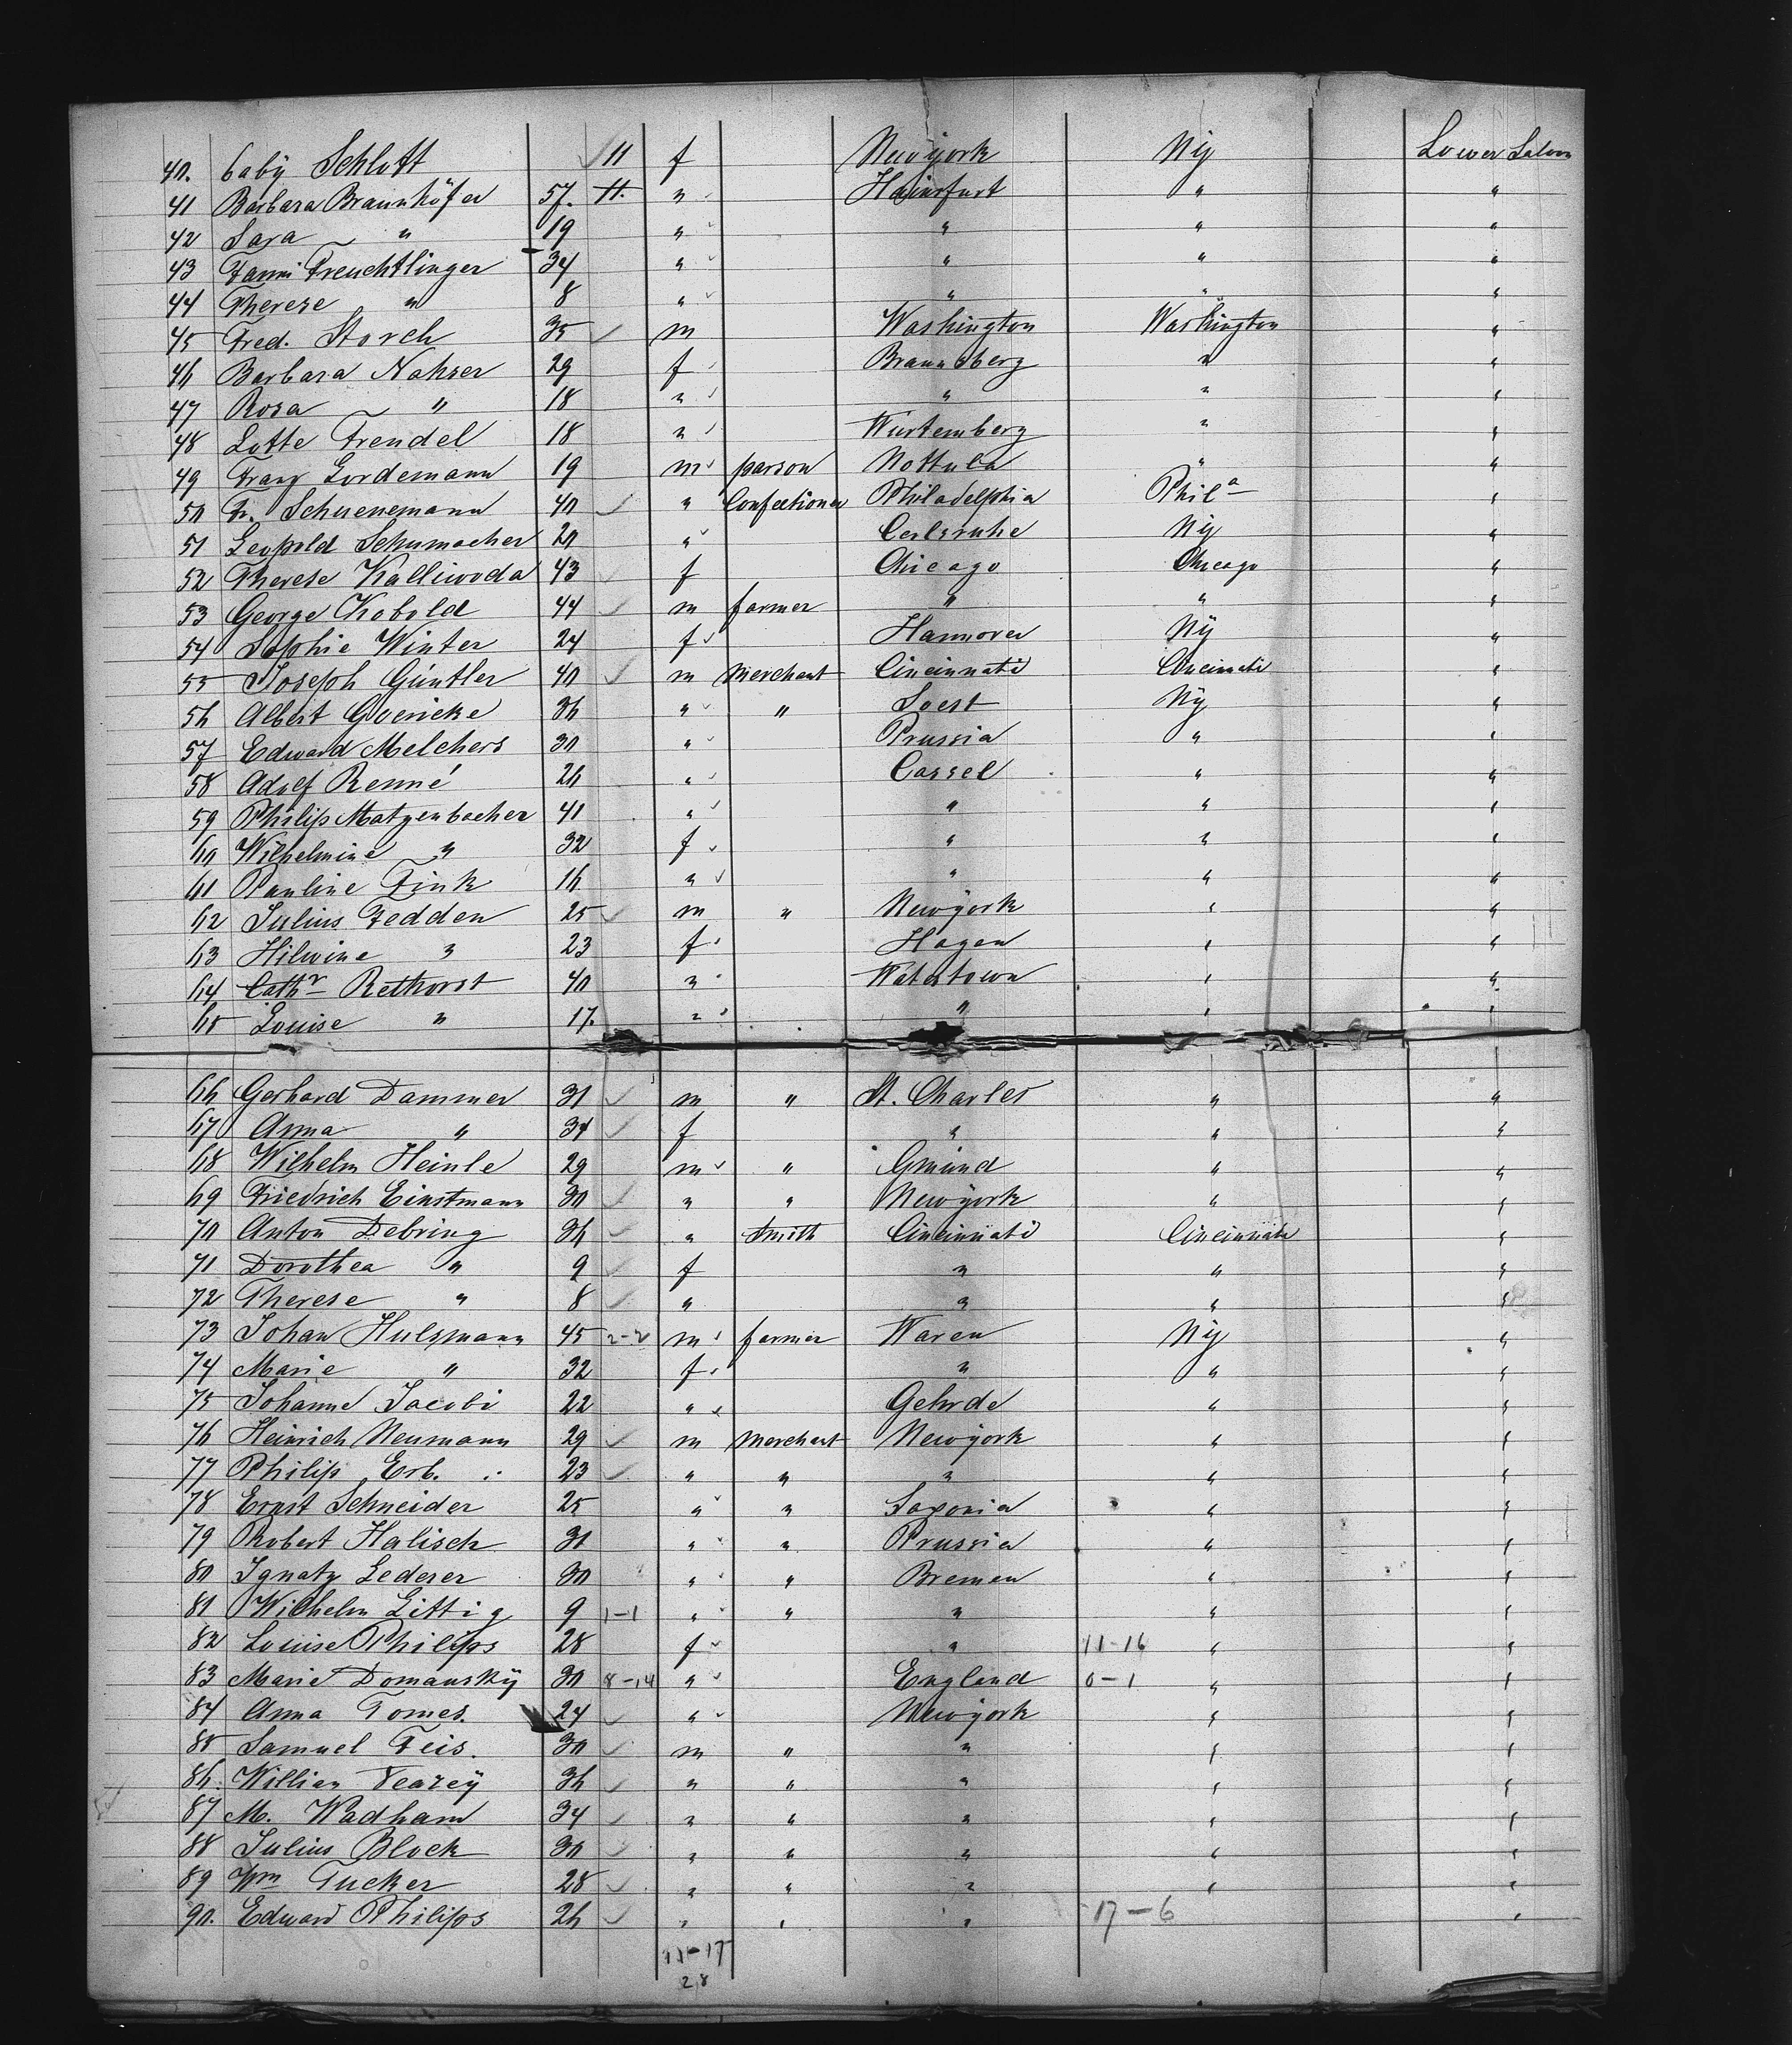 40. baby Schlott 11 f Newyork Ny Lower Saloon
41 Barbara Braunhöfer 57. 11. " Hainsfurt " "
42 Sara " 19 " " " "
43 Fanni Freuchtlinger 34 " " " "
44 Therese " 8 " " " "
45 Fred. Storch 35 m Washington Washington "
46 Barbara Nahser 29 f Braunsberg " "
47 Rosa " 18 " " " "
48 Lotte Frendel 18 " Würtemberg " "
49 Franz Lordemann 19 m parson Nottuln " "
50 Fr. Schuenemann 40 " Confectioner Philadelphia Phila "
51 Leopold Schumacher 20 " Carlsruhe Ny "
52 Therese Kalliwoda 43 f Chicago Chicago "
53 George Kobold 44 m farmer " " "
54 Sophie Winter 24 f Hannover Ny "
55 Joseph Güntler 40 m Merchant Cincinnati Cincinnati "
56 Albert Goericke 36 " " Soest Ny "
57 Edward Melchers 30 " Prussia " "
58 Adolf Renné 26 " Cassel " "
59 Philip Matzenbacher 41 " " " "
60 Wilhelmine " 32 f " " "
61 Pauline Fink 16 " " " "
62 Julius Fedden 25 m " Newyork " "
63 Hilwine " 23 f Hagen " "
64 Cathr Rethorst 40 " Watertown " "
65 Louise " 17. " " " "
66 Gerhard Dammer 31 m " St. Charles " "
67 Anna " 34 f " " "
68 Wilhelm Heinle 29 m " Gmünd " "
69 Friedrich Einstmann 30 " " Newyork " "
70 Anton Debring 36 " Smith Cincinnati Cincinnati "
71 Dorothea " 9 f " " "
72 Therese " 8 " " " "
73 Johan Hulsmann 45 2-2 m farmer Waren Ny "
74 Marie " 32 f " " "
75 Johanne Jacobi 22 " Gehrde " "
76 Heinrich Neumann 29 m Merchant Newyork " "
77 Philip Erb. 23 " " " " "
78 Ernst Schneider 25 " " Saxonia " "
79 Robert Halisch 31 " " Prussia " "
80 Ignatz Lederer 30 " " Bremen " "
81 Wilhelm Littig 9 1-1 " " " " "
82 Louise Philips 28 f " 11-16 " "
83 Marie Domansky 30 8-14 " England 0-1 " "
84 Anna Tomes. 24 " Newyork " "
85 Samuel Feis. 30 m " " " "
86. William Vearey 36 " " " " "
87 M. Wadham 34 " " " " "
88 Julius Block 30 " " " " "
89 Wm Tucker 28 " " " " "
90. Edward Philips 26 " " " 17-6 "
11-17
28